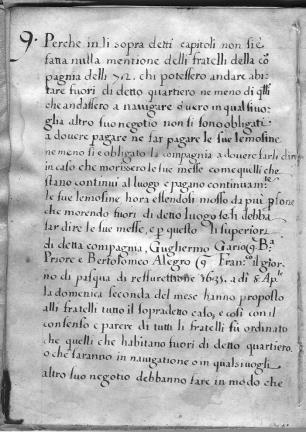 9. Perche in li sopra detti capitoli non si è
fatta nulla mentione delli fratelli della cõ
pagnia delli 72. chi potessero andare abi
tare fuori di detto quartiero ne meno di qlli
che andassero a navigare ò vero in qual sivo
glia altro suo negotio non ti sono obligati
a dovere pagare ne far pagare le sue lemosine
ne meno si e obligato la compagnia a dovere farli dire
in caso che morissero le sue messe come quelli che
stano continui al luogo e pagano continuam.te
le sue lemosine hora essendosi mosso da piu psone
che morendo fuori di detto luogo se li debba
far dire le sue messe, e p questo li superiori
di detta compagnia, Gugliermo Gario q. Ba
Priore e Bertolomeo Alegro q. Fran.co il gior
no di pasqua di ressurettione 1635. a di 8. Aple
la domenica seconda del mese hanno proposto
alli fratelli tutto il sopradetto caso, e così con il
consenso e parere di tutti li fratelli fu ordinato
che quelli che habitano fuori di detto quartiero
o che saranno in navigatione o in qual si vogli
altro suo negotio debbanno fare in modo che